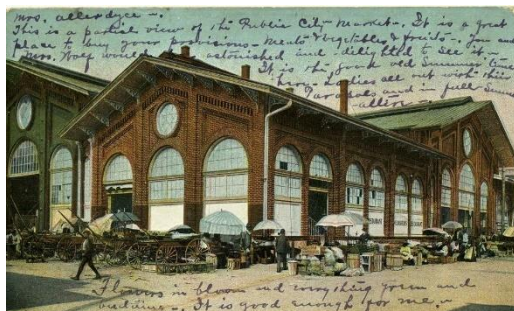 mrs. allerdyce -.
This is a partial view of the Public City Market - It is a great
place to buy your provisions - meats & vegetables & fruits -. You and
Mrs. Wolf would be astonished and delighted to see it -
It is the good old Summer time
Ladies all out with their
Parasols and in full Summer
Flowers in bloom and everything green and
It is good enough for me. -